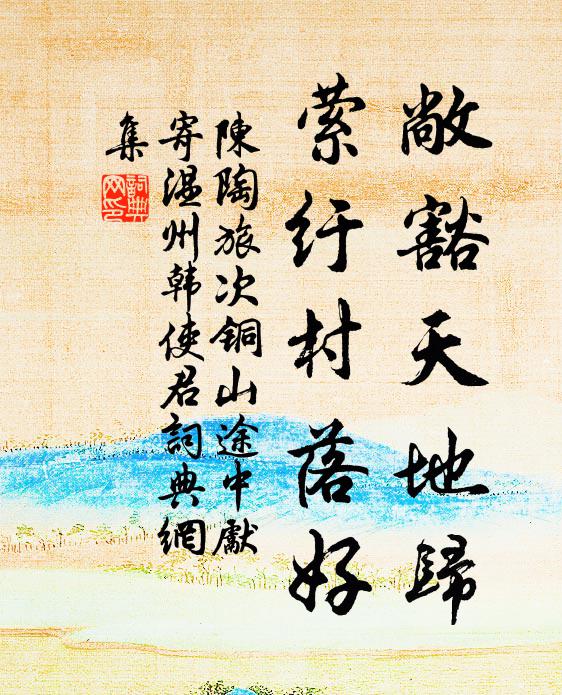 敞豁天地歸
縈紆村落好
陳陶旅次铜山途中獻
寄溫州韩使君詞典網
集
詞典网印